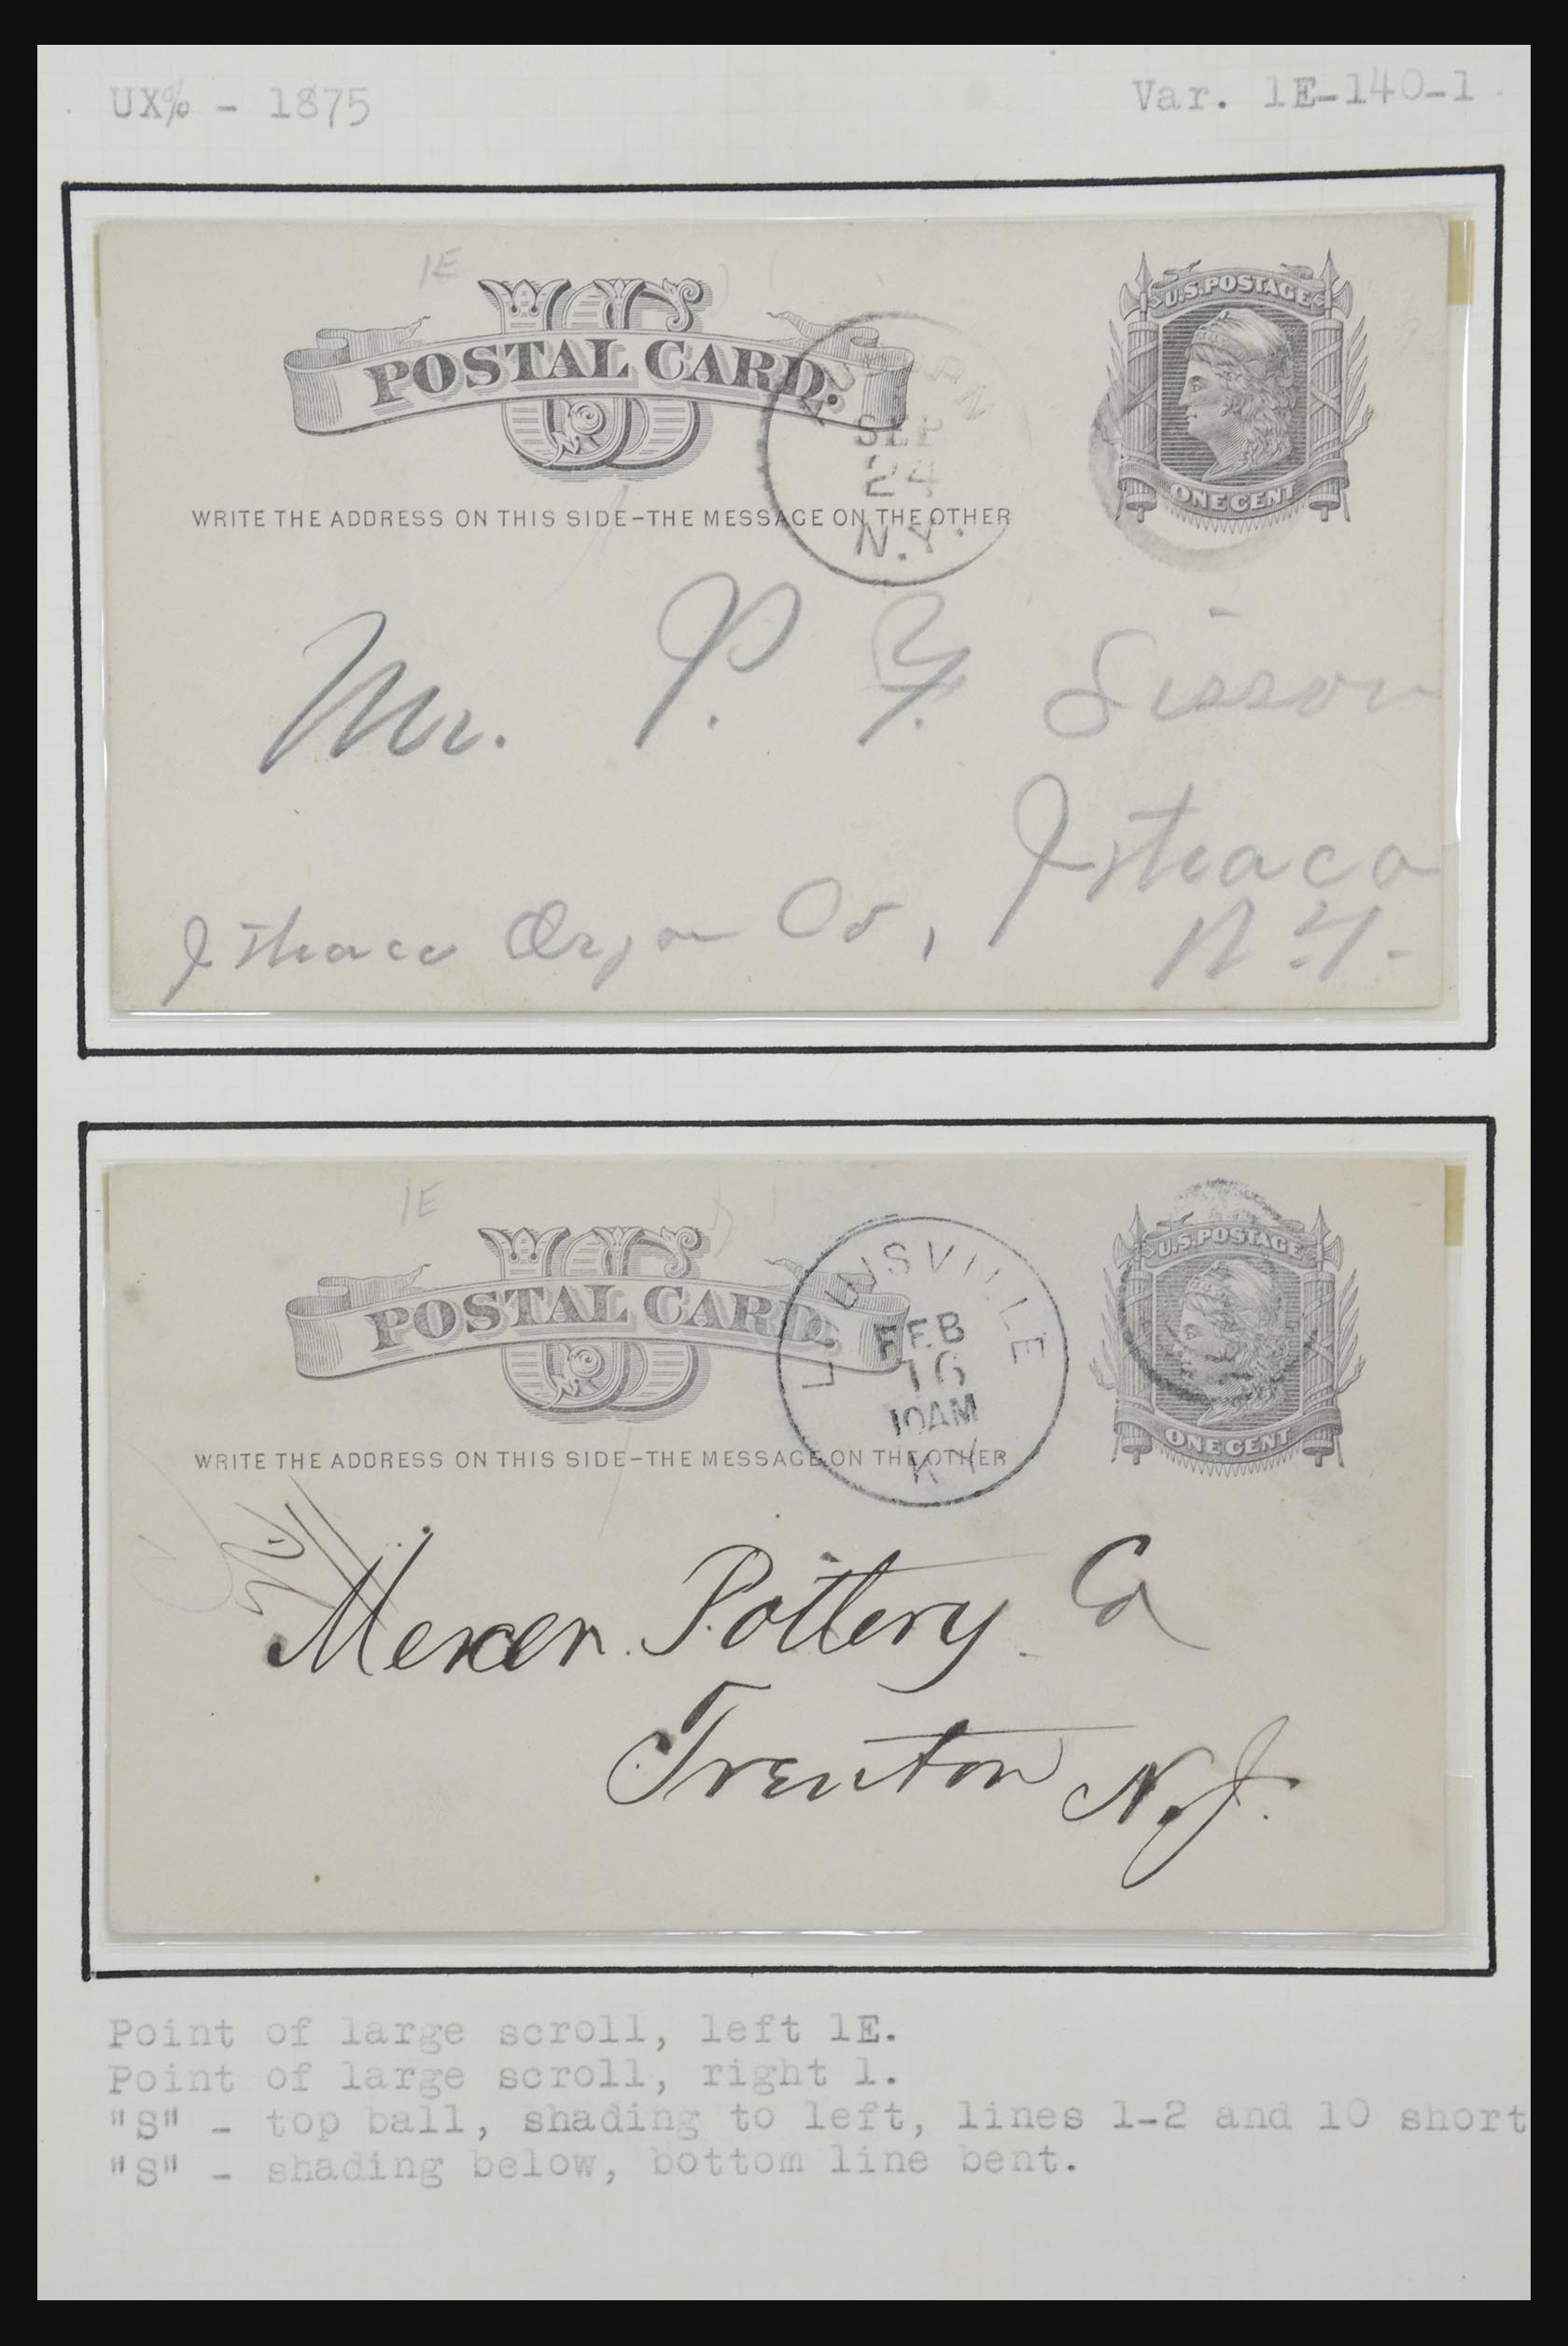 UX% - 1875
Var. 1E-140-1
1E
US
POSTAL CARD.
U.S. POSTAGE
ONE CENT
SEP
24
N.Y.
WRITE THE ADDRESS ON THIS SIDE-THE MESSAGE ON THE OTHER
Mr. P. Y. Sisson
Ithaca
N.Y.
Ithaca Organ Co,
1E
US
POSTAL CARD.
U.S. POSTAGE
ONE CENT
LOUISVILLE
FEB
16
10AM
KY
WRITE THE ADDRESS ON THIS SIDE-THE MESSAGE ON THE OTHER
Mercer Pottery Co
Trenton N.J.
Point of large scroll, left 1E.
Point of large scroll, right 1.
"S" - top ball, shading to left, lines 1-2 and 10 short
"S" - shading below, bottom line bent.